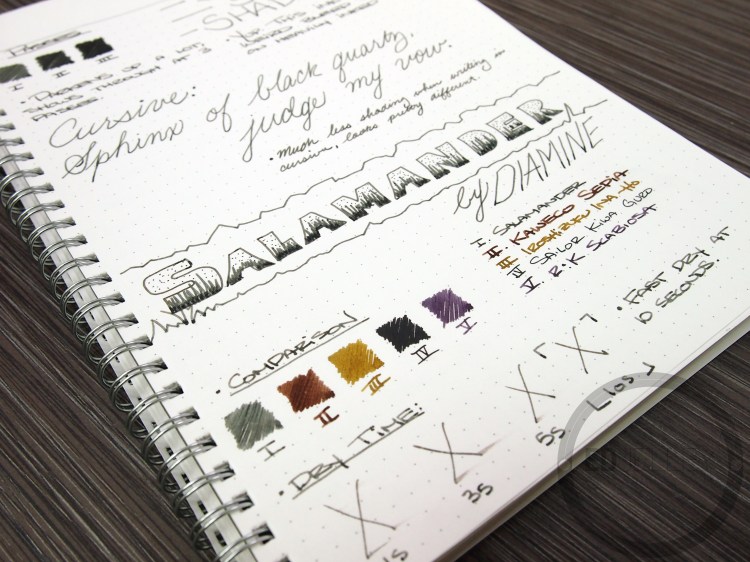 I II III
SHOWS THROUGH AT 3
PASSES.
Cursive:
Sphinx of black quartz,
judge my vow.
• Much less shading when writing in
cursive, looks pretty different.
SALAMANDER
by DIAMINE
I SALAMANDER
II KAWECO SEPIA
III IROSHIZUKU INA-HO
IV SAILOR KIWA GURO
V R•K SCABIOSA
• COMPARISON
I II III IV V
• DRY TIME:
1S 3S 5S 10S
• FAST DRY AT
10 SECONDS.